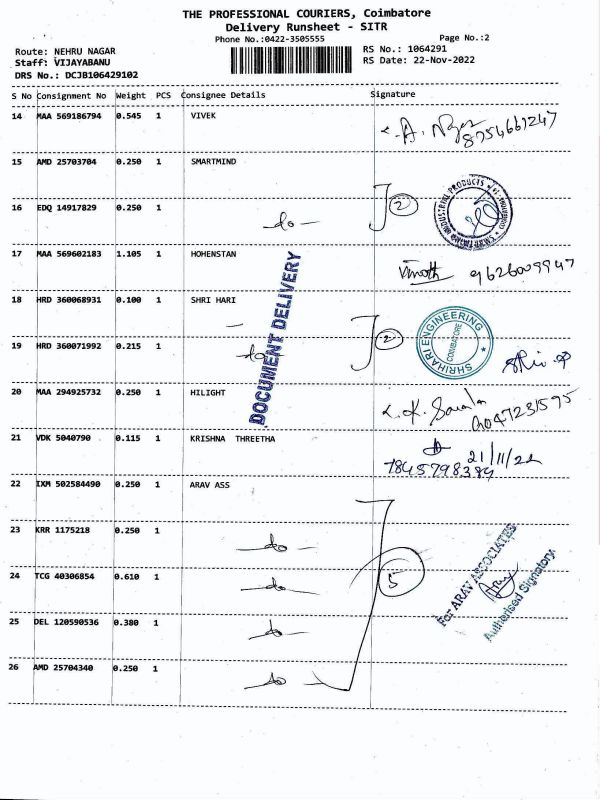 THE PROFESSIONAL COURIERS, Coimbatore
Delivery Runsheet - SITR
Phone No.:0422-3505555 Page No.:2
Route: NEHRU NAGAR RS No.: 1064291
Staff: VIJAYABANU RS Date: 22-Nov-2022
DRS No.: DCJB106429102
S No Consignment No Weight PCS Consignee Details Signature
14 MAA 569186794 0.545 1 VIVEK
8754661247
15 AMD 25703704 0.250 1 SMARTMIND
16 EDQ 14917829 0.250 1 do 2
17 MAA 569602183 1.105 1 HOHENSTAN
Vinoth 9626009947
18 HRD 360068931 0.100 1 SHRI HARI
SHRIHARI ENGINEERING
COIMBATORE
19 HRD 360071992 0.215 1 do 2
DOCUMENT DELIVERY
20 MAA 294925732 0.250 1 HILIGHT
21 VDK 5040790 0.115 1 KRISHNA THREETHA
21/11/22
7845798384
22 IXM 502584490 0.250 1 ARAV ASS
23 KRR 1175218 0.250 1 do
24 TCG 40306854 0.610 1 do 5
For ARAV ASSOCIATES
Authorised Signatory
25 DEL 120590536 0.380 1 do
26 AMD 25704340 0.250 1 do